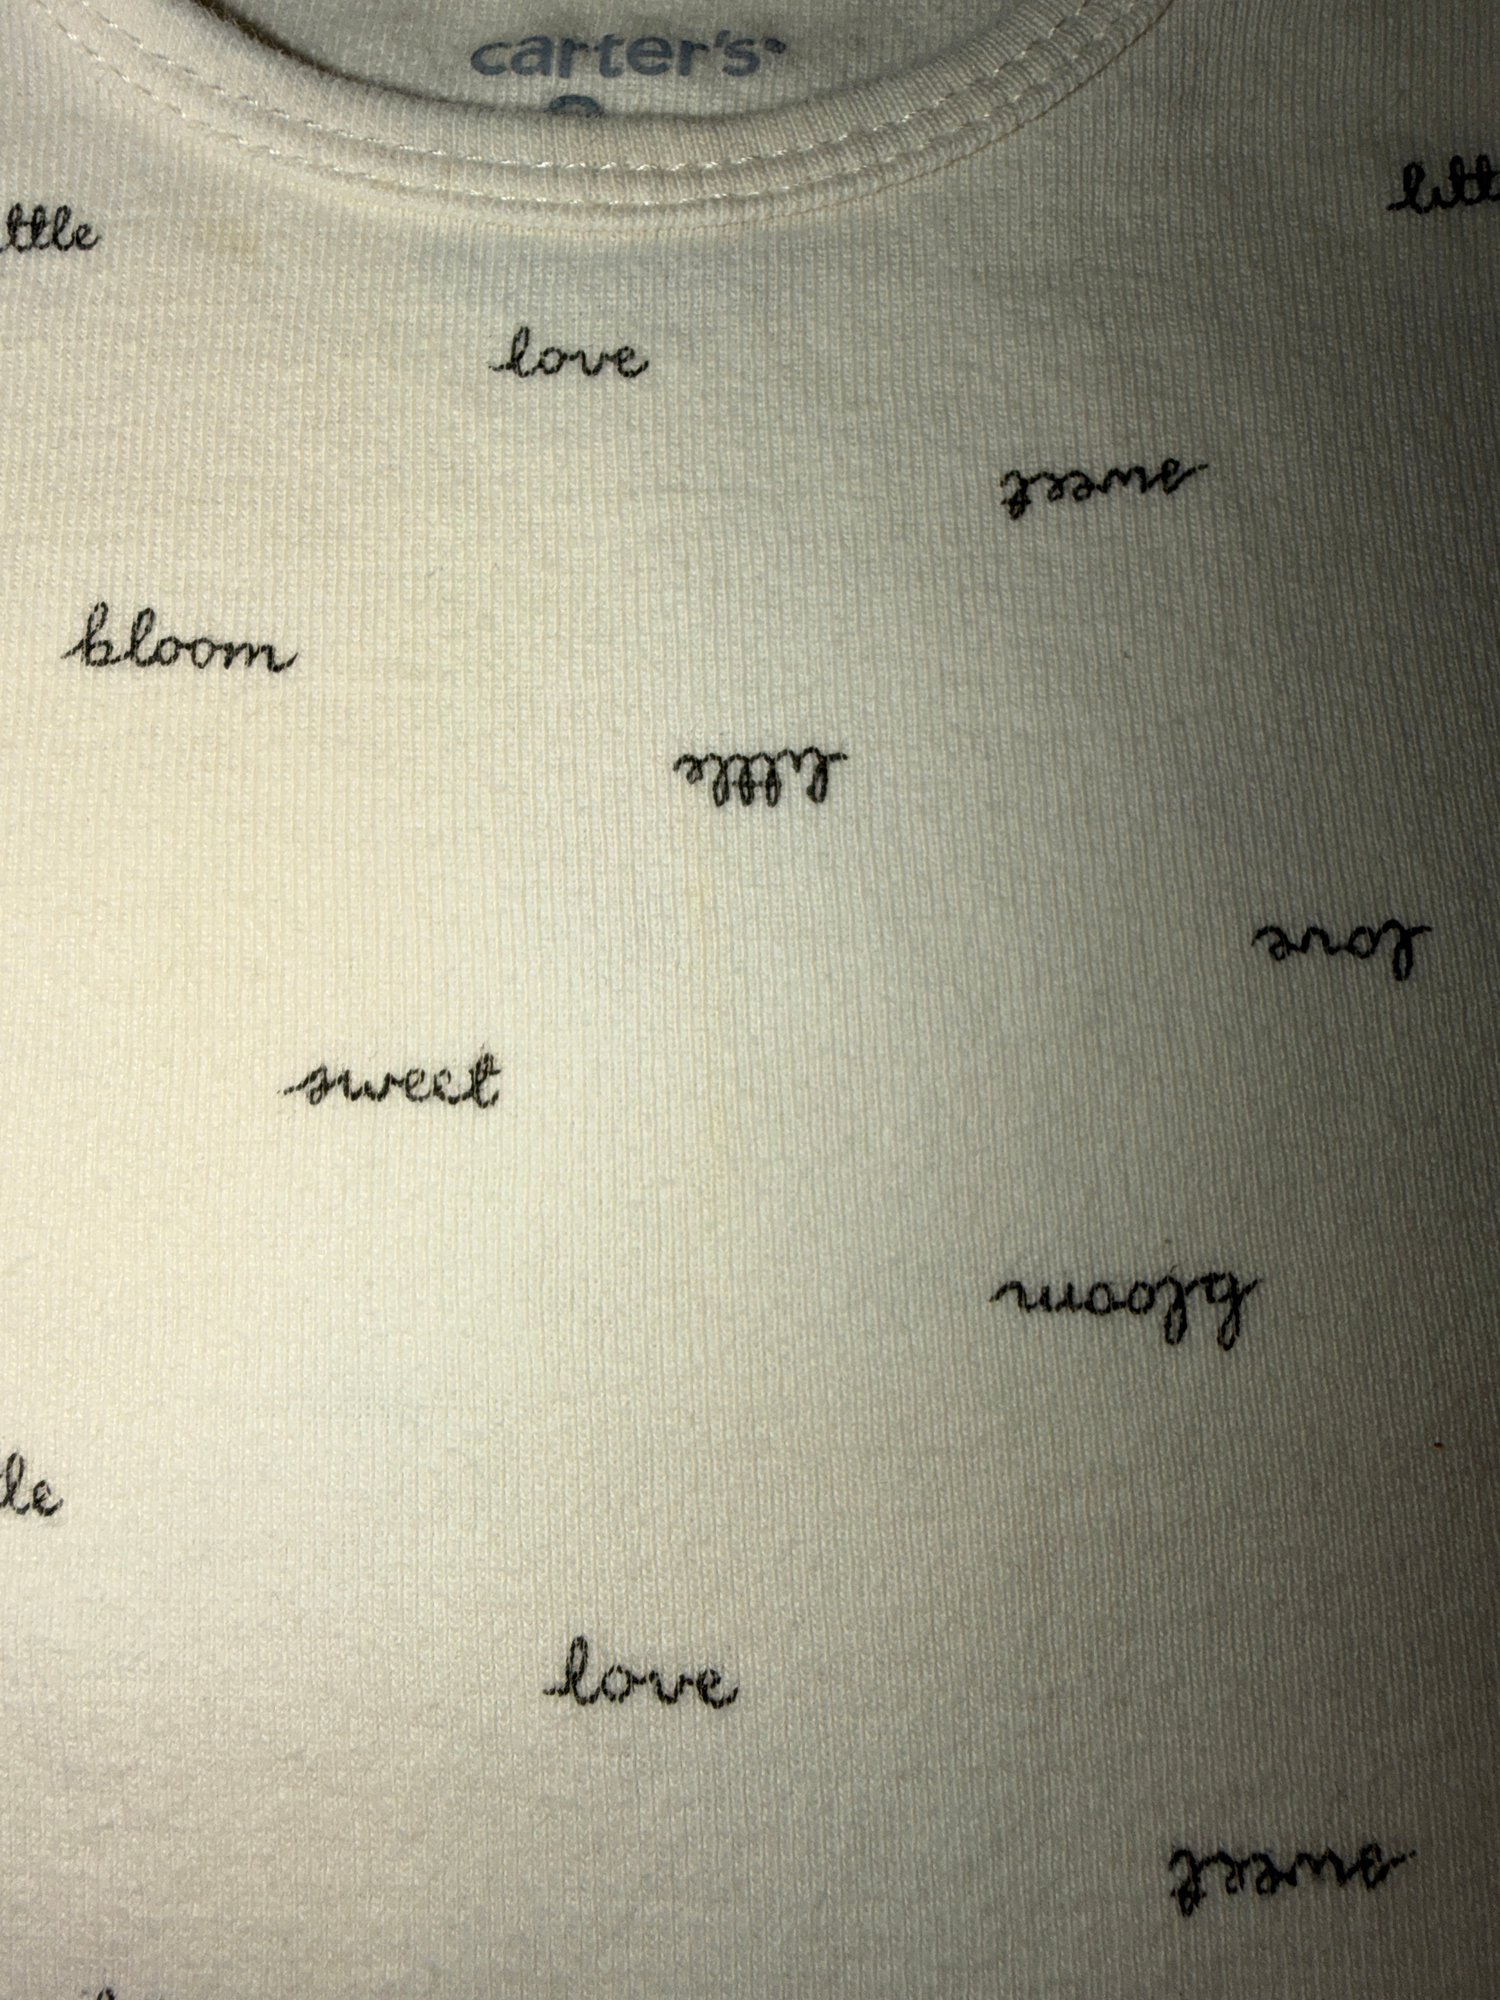 carter's
little
love
sweet
bloom
little
love
sweet
bloom
love
sweet